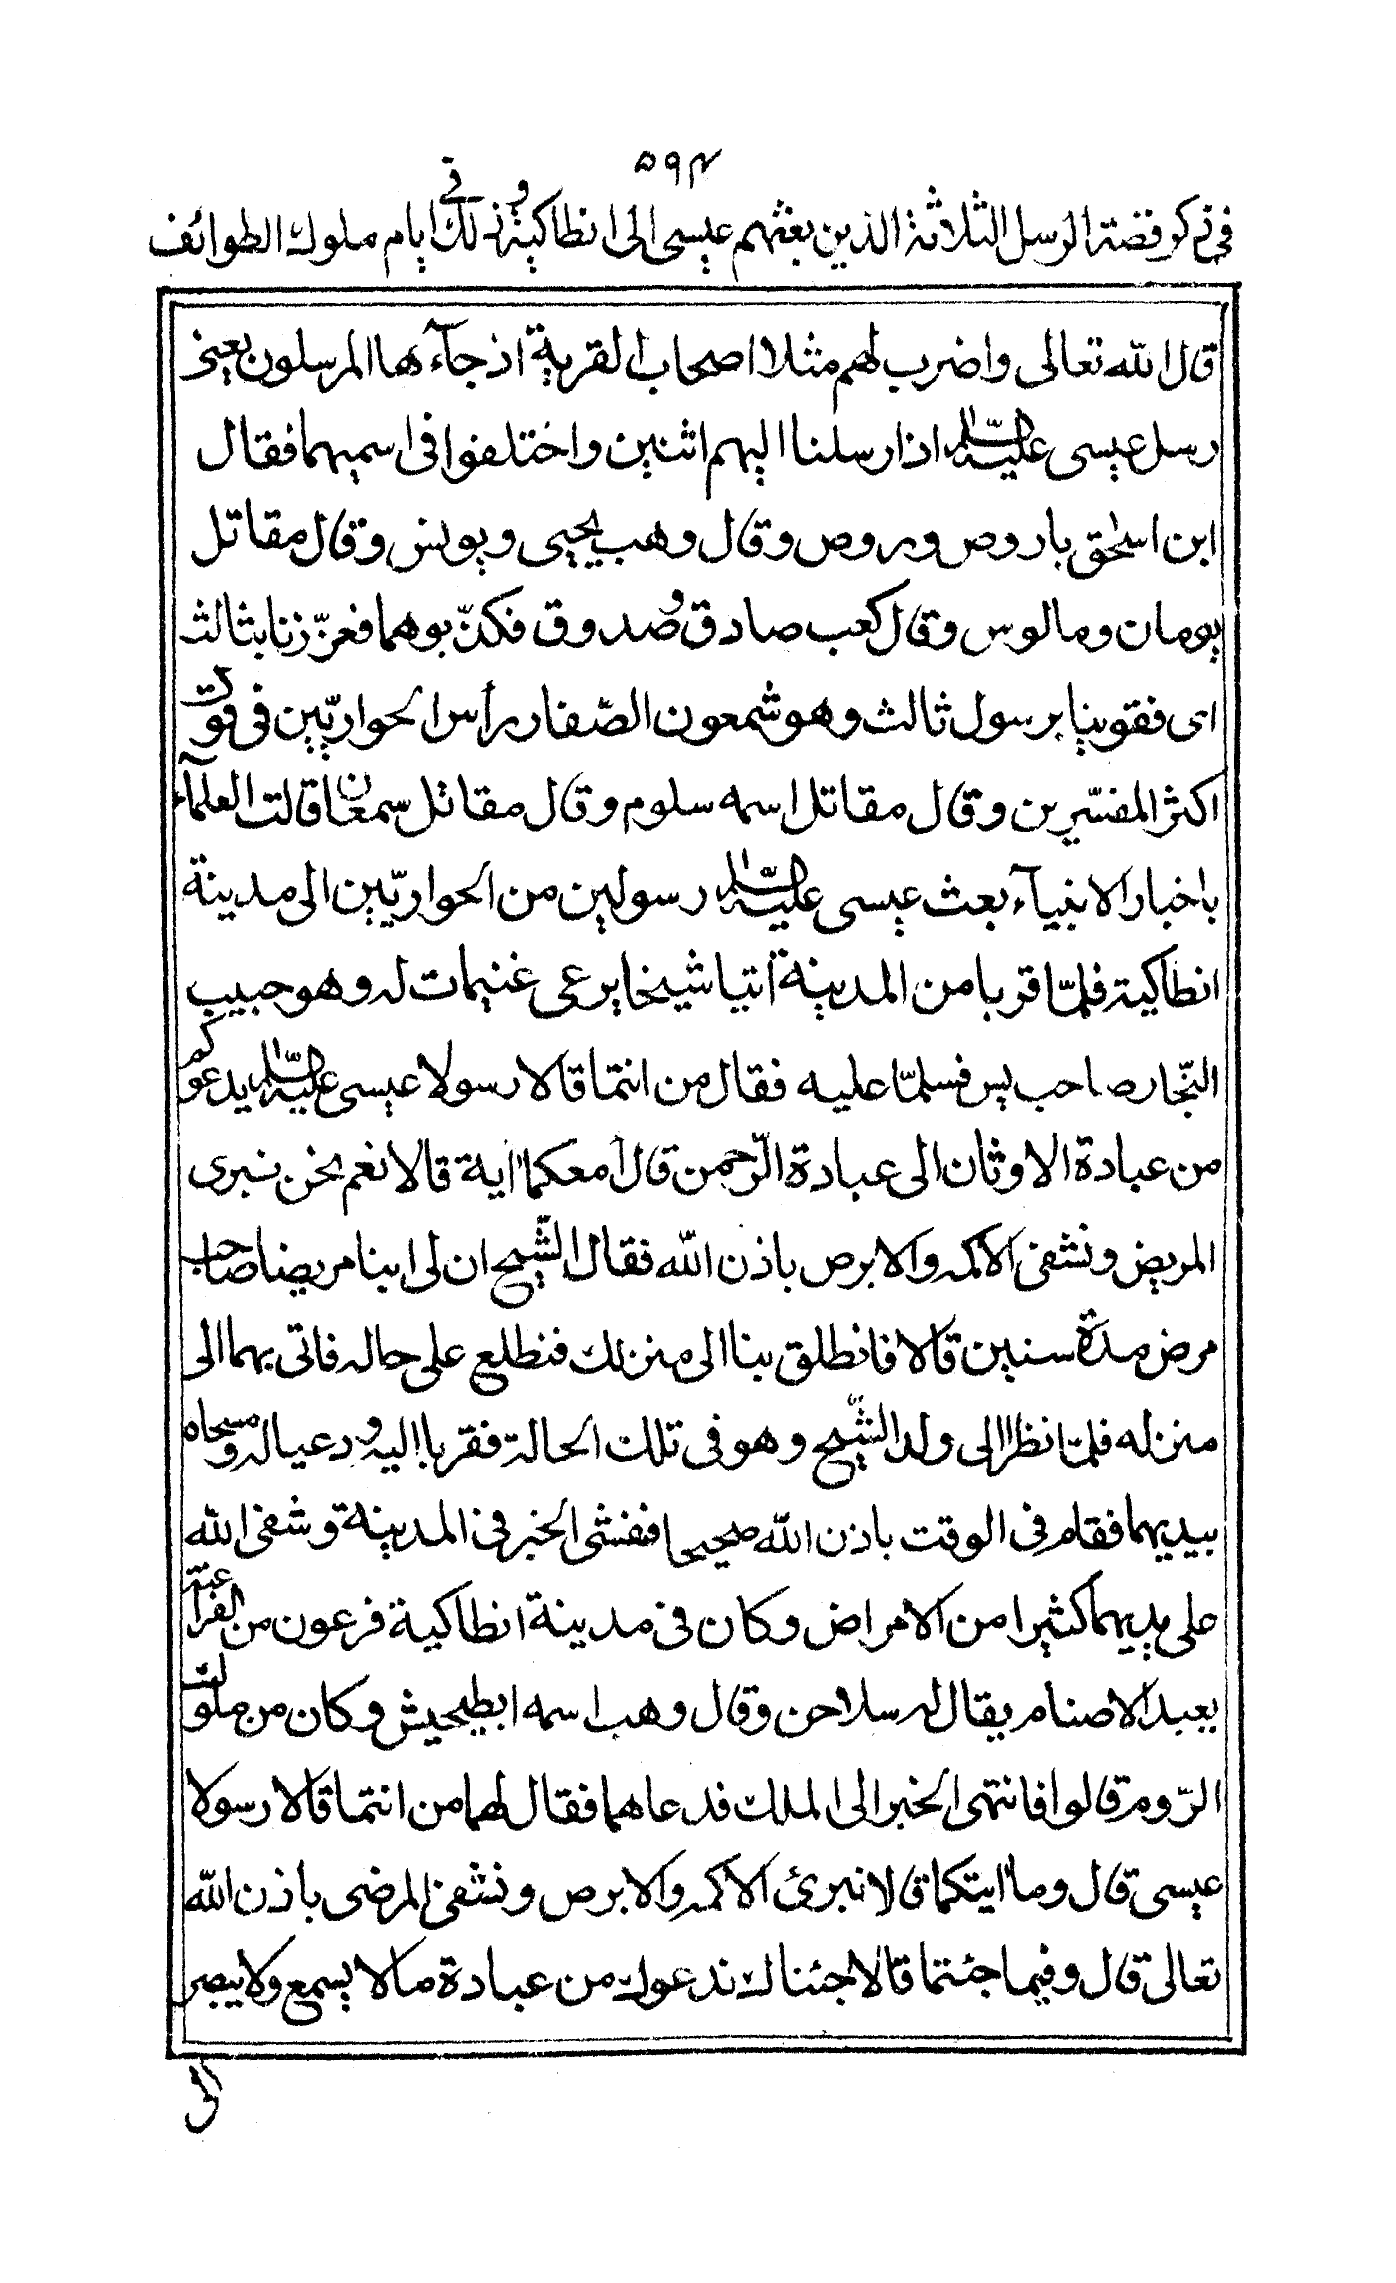 ۵۹۴
في ذكر قصة الرسل الثلاثة الذين بعثهم عيسى الى انطاكية وذلك في ايام ملوك الطوائف
قال الله تعالى واضرب لهم مثلا اصحاب القرية اذ جآءها المرسلون يعني
رسل عيسى عليه السلام اذ ارسلنا اليهم اثنين واختلفوا في اسميهما فقال
ابن اسحق باروص وروص وقال وهب يحيى ويونس وقال مقاتل
يومان ومالوس وقال كعب صادق وصدوق فكذّبوهما فعزّزنا بثالث
اى فقوينا برسول ثالث وهو شمعون الصّفار رأس الحواريّين في قول
اكثر المفسّرين وقال مقاتل اسمه سلوم وقال مقاتل سمعان قالت العلمآء
باخبار الانبيآء بعث عيسى عليه السّلام رسولين من الحواريّين الى مدينة
انطاكية فلمّا قربا من المدينة اتيا شيخا يرعى غنيمات له وهو حبيب
النجّار صاحب يس فسلّما عليه فقال من انتما قالا رسولا عيسى عليه السّلام يدعوكم
من عبادة الاوثان الى عبادة الرّحمن قال أمعكما اية قالا نعم نحن نبرى
المريض ونشفى الاكمه والابرص باذن الله فقال الشّيخ ان لى ابنا مريضا صاحب
مرض مدة سنين قالا فانطلق بنا الى منزلك فنطلع على حاله فاتى بهما الى
منزله فلمّا نظرا الى ولد الشّيخ وهو في تلك الحالة فقربا اليه ودعيا له ومسحاه
بيديهما فقام في الوقت باذن الله صحيحا ففشى الخبر في المدينة وشفى الله
على يديهما كثيرا من الامراض وكان في مدينة انطاكية فرعون من الفراعنة
يعبد الاصنام يقال له سلاحن وقال وهب اسمه ابطيحيش وكان من ملوك
الرّوم قالوا فانتهى الخبر الى الملك فدعاهما فقال لهما من انتما قالا رسولا
عيسى قال وما ايتكما قالا نبرئ الاكمه والابرص ونشفى المرضى باذن الله
تعالى قال وفيما جئتما قالا جئناك ندعوك من عبادة مالا يسمع ولا يبصر
الى